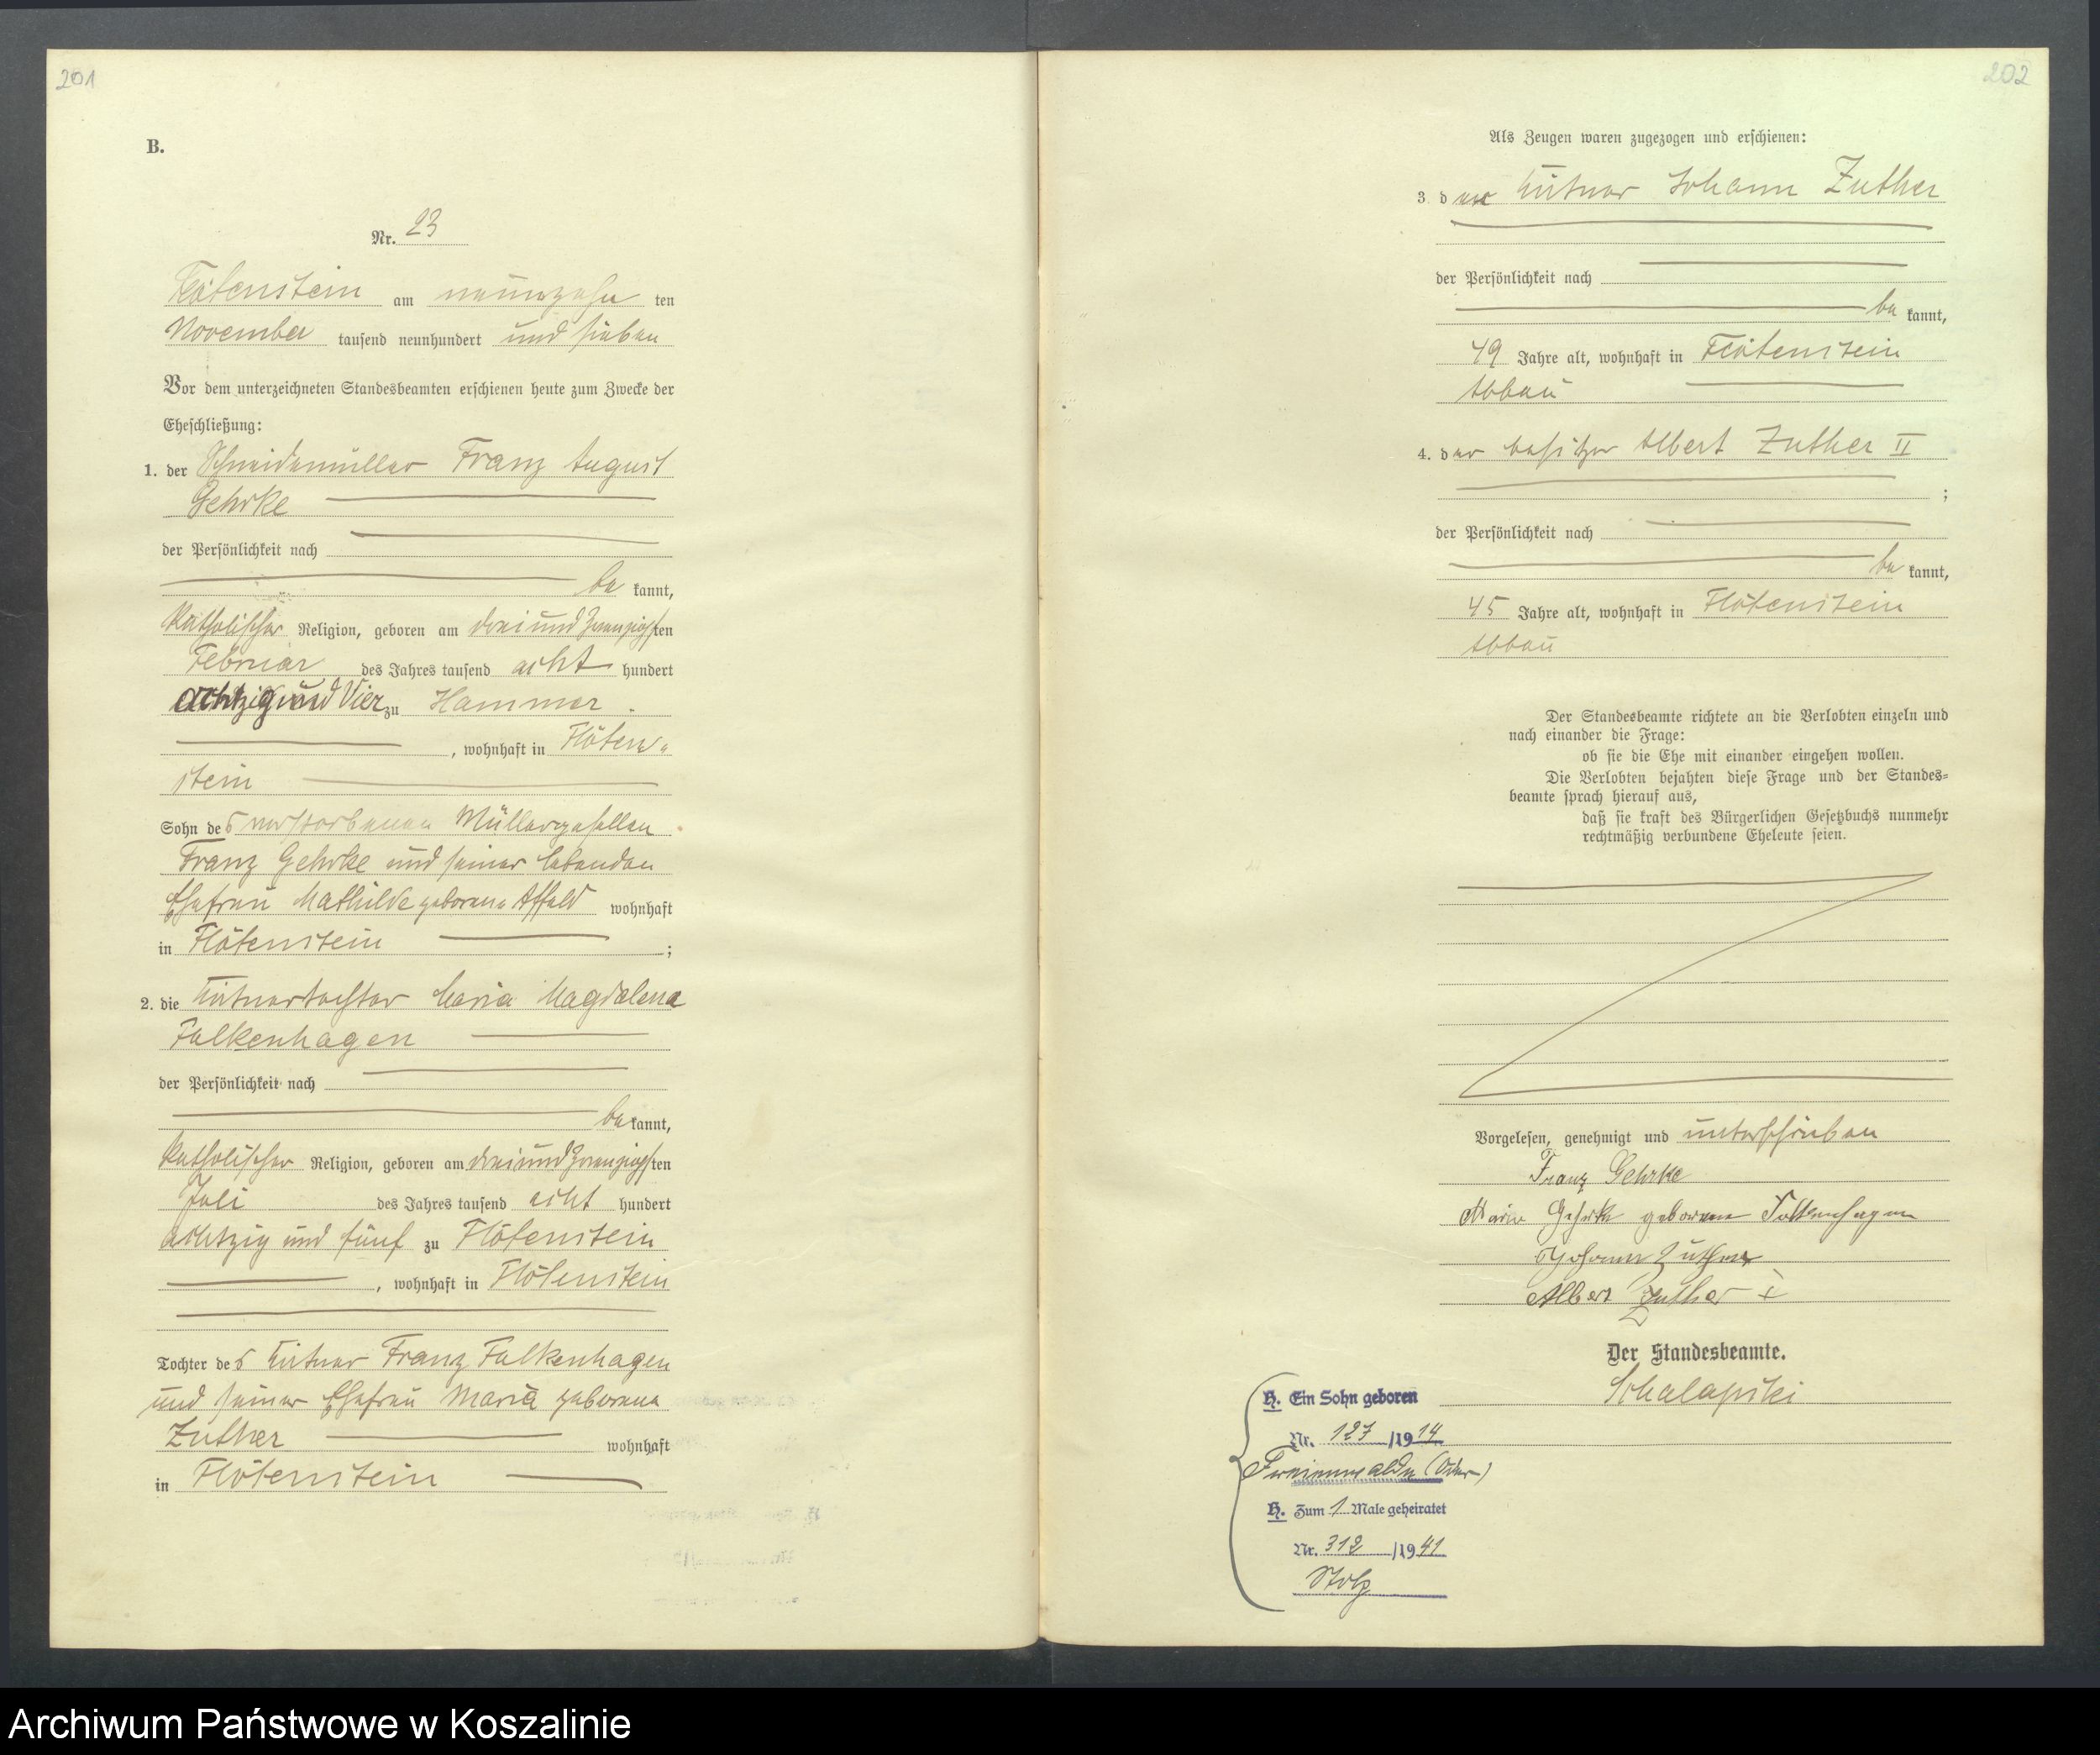 201
B.
Nr. 23
Flötenstein am neunzehn ten
November tausend neunhundert und sieben
Vor dem unterzeichneten Standesbeamten erschienen heute zum Zwecke der
Eheschließung:
1. der Schneidemüller Franz August
Gehrke
der Persönlichkeit nach
be kannt,
katholischer Religion, geboren am dreiundzwanzigsten
Februar des Jahres tausend acht hundert
achtzig und Vier zu Hammer
, wohnhaft in Flöten-
stein
Sohn des verstorbenen Müllergesellen
Franz Gehrke und seiner lebenden
Ehefrau Mathilde geborene Affeld wohnhaft
in Flötenstein ;
2. die Kätnertochter Maria Magdalena
Falkenhagen
der Persönlichkeit nach
be kannt,
katholischer Religion, geboren am dreiundzwanzigsten
Juli des Jahres tausend acht hundert
achtzig und fünf zu Flötenstein
, wohnhaft in Flötenstein
Tochter des Kätner Franz Falkenhagen
und seiner Ehefrau Maria geborene
Zuther wohnhaft
in Flötenstein
202
Als Zeugen waren zugezogen und erschienen:
3. der Kätner Johann Zuther
der Persönlichkeit nach
be kannt,
49 Jahre alt, wohnhaft in Flötenstein
Abbau
4. der Besitzer Albert Zuther II
;
der Persönlichkeit nach
be kannt,
45 Jahre alt, wohnhaft in Flötenstein
Abbau
Der Standesbeamte richtete an die Verlobten einzeln und
nach einander die Frage:
ob sie die Ehe mit einander eingehen wollen.
Die Verlobten bejahten diese Frage und der Standes=
beamte sprach hierauf aus,
daß sie kraft des Bürgerlichen Gesetzbuchs nunmehr
rechtmäßig verbundene Eheleute seien.
Vorgelesen, genehmigt und unterschrieben
Franz Gehrke
Maria Gehrke geborene Falkenhagen
Johann Zuther
Albert Zuther
Der Standesbeamte.
Schalapski
H. Ein Sohn geboren
Nr. 127 /19 14
Freienwalde (Oder)
H. Zum 1 Male geheiratet
Nr. 312 /19 41
Stolp
Archiwum Państwowe w Koszalinie